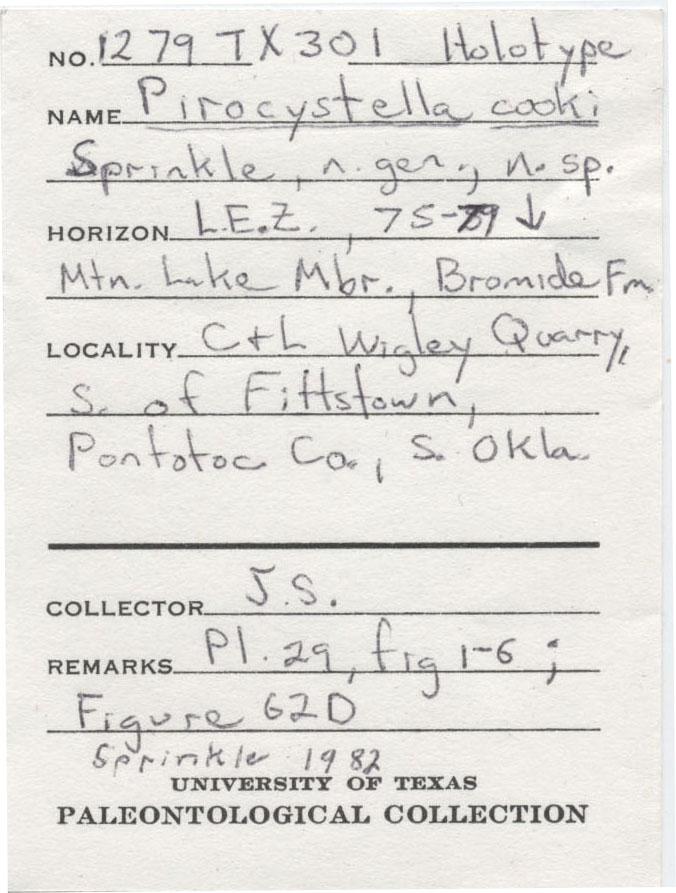 NO. 1279 TX 301 Holotype
NAME Pirocystella cooki
Sprinkle, n. gen., n. sp.
HORIZON L.E.Z., 75-79 ↓
Mtn. Lake Mbr., Bromide Fm.
LOCALITY C+L Wigley Quarry,
S. of Fittstown,
Pontotoc Co., S. Okla.
COLLECTOR J.S.
REMARKS Pl. 29, fig 1-6;
Figure 62D
Sprinkle 1982
UNIVERSITY OF TEXAS
PALEONTOLOGICAL COLLECTION